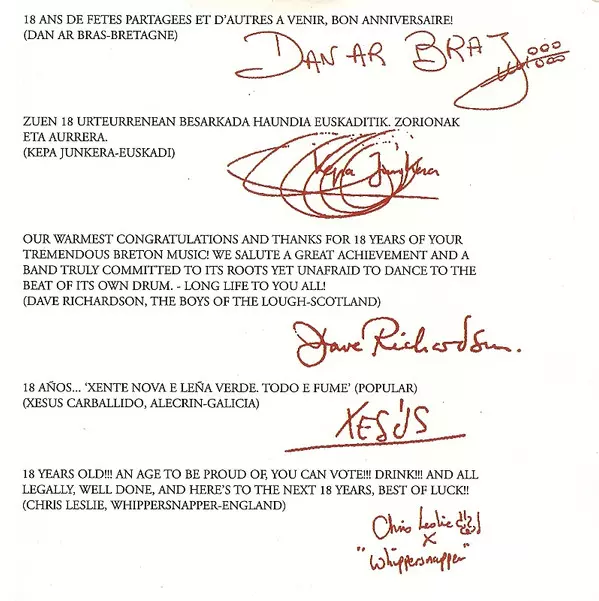 18 ANS DE FETES PARTAGEES ET D'AUTRES A VENIR, BON ANNIVERSAIRE!
(DAN AR BRAS-BRETAGNE)
DAN AR BRAZ
ZUEN 18 URTEURRENEAN BESARKADA HAUNDIA EUSKADITIK. ZORIONAK
ETA AURRERA.
(KEPA JUNKERA-EUSKADI)
Kepa Junkera
OUR WARMEST CONGRATULATIONS AND THANKS FOR 18 YEARS OF YOUR
TREMENDOUS BRETON MUSIC! WE SALUTE A GREAT ACHIEVEMENT AND A
BAND TRULY COMMITTED TO ITS ROOTS YET UNAFRAID TO DANCE TO THE
BEAT OF ITS OWN DRUM. - LONG LIFE TO YOU ALL!
(DAVE RICHARDSON, THE BOYS OF THE LOUGH-SCOTLAND)
Dave Richardson.
18 AÑOS... 'XENTE NOVA E LEÑA VERDE. TODO E FUME' (POPULAR)
(XESUS CARBALLIDO, ALECRIN-GALICIA)
XESÚS
18 YEARS OLD!!! AN AGE TO BE PROUD OF, YOU CAN VOTE!!! DRINK!!! AND ALL
LEGALLY, WELL DONE, AND HERE'S TO THE NEXT 18 YEARS, BEST OF LUCK!!
(CHRIS LESLIE, WHIPPERSNAPPER-ENGLAND)
Chris Leslie
X
"Whippersnapper"